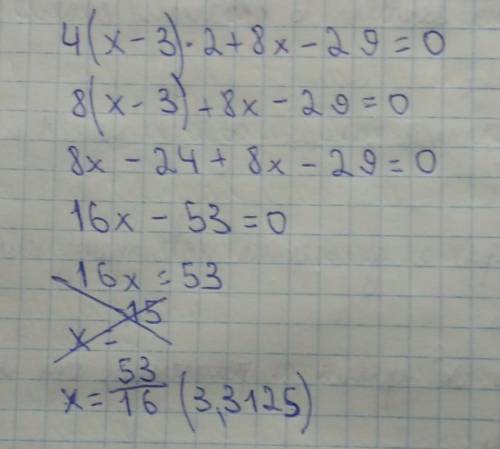 4(x-3)·2+8x-29=0
8(x-3)+8x-29=0
8x-24+8x-29=0
16x-53=0
16x=53
x=53/16 (3,3125)